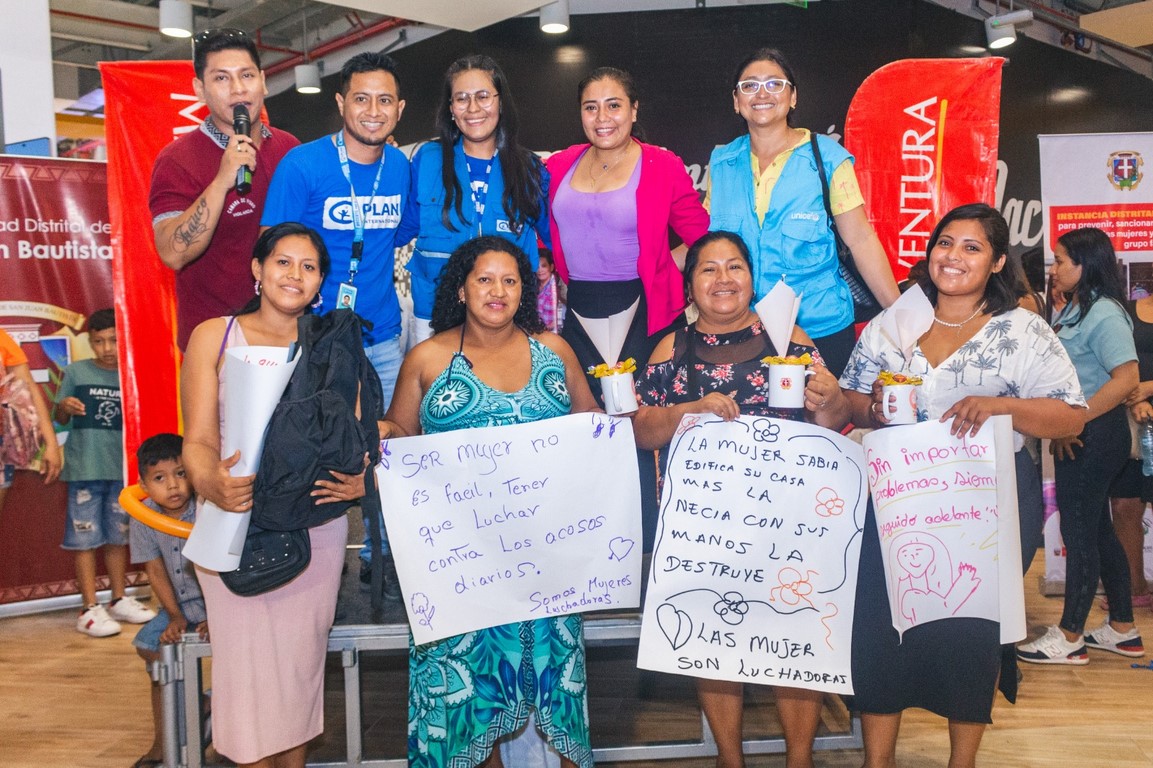 PLAN
INTERNATIONAL
unicef
VENTURA
ad Distrital de
n Bautista
INSTANCIA DISTRITAL
para prevenir, sancionar
mujeres y
grupo
Ser mujer no
es facil, Tener
que Luchar
contra Los acosos
diarios.
Somos Mujeres
Luchadoras.
LA MUJER SABIA
EDIFICA SU CASA
MAS LA
NECIA CON SUS
MANOS LA
DESTRUYE
LAS MUJER
SON LUCHADORAS
Sin importar
problemas, siem
seguido adelante!